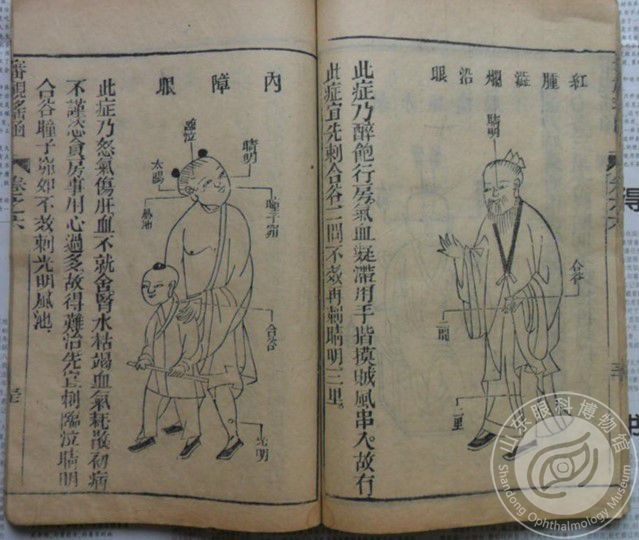 紅腫澁爛沿眼
睛明
合谷
二間
三里
此症乃醉飽行房氣血凝滯用手揩摸賊風串入故有
此症宜先刺合谷二間不效再刺睛明三里
內障眼
臨泣
睛明
太陽
瞳子窌
風池
合谷
光明
此症乃怒氣傷肝血不就舍腎水枯竭血氣耗散初病
不謹恣貪房事用心過多故得難治先宜刺臨泣睛明
合谷瞳子窌如不效刺光明風池
審視瑤函 卷之六
山东眼科博物馆
Shandong Ophthalmology Museum